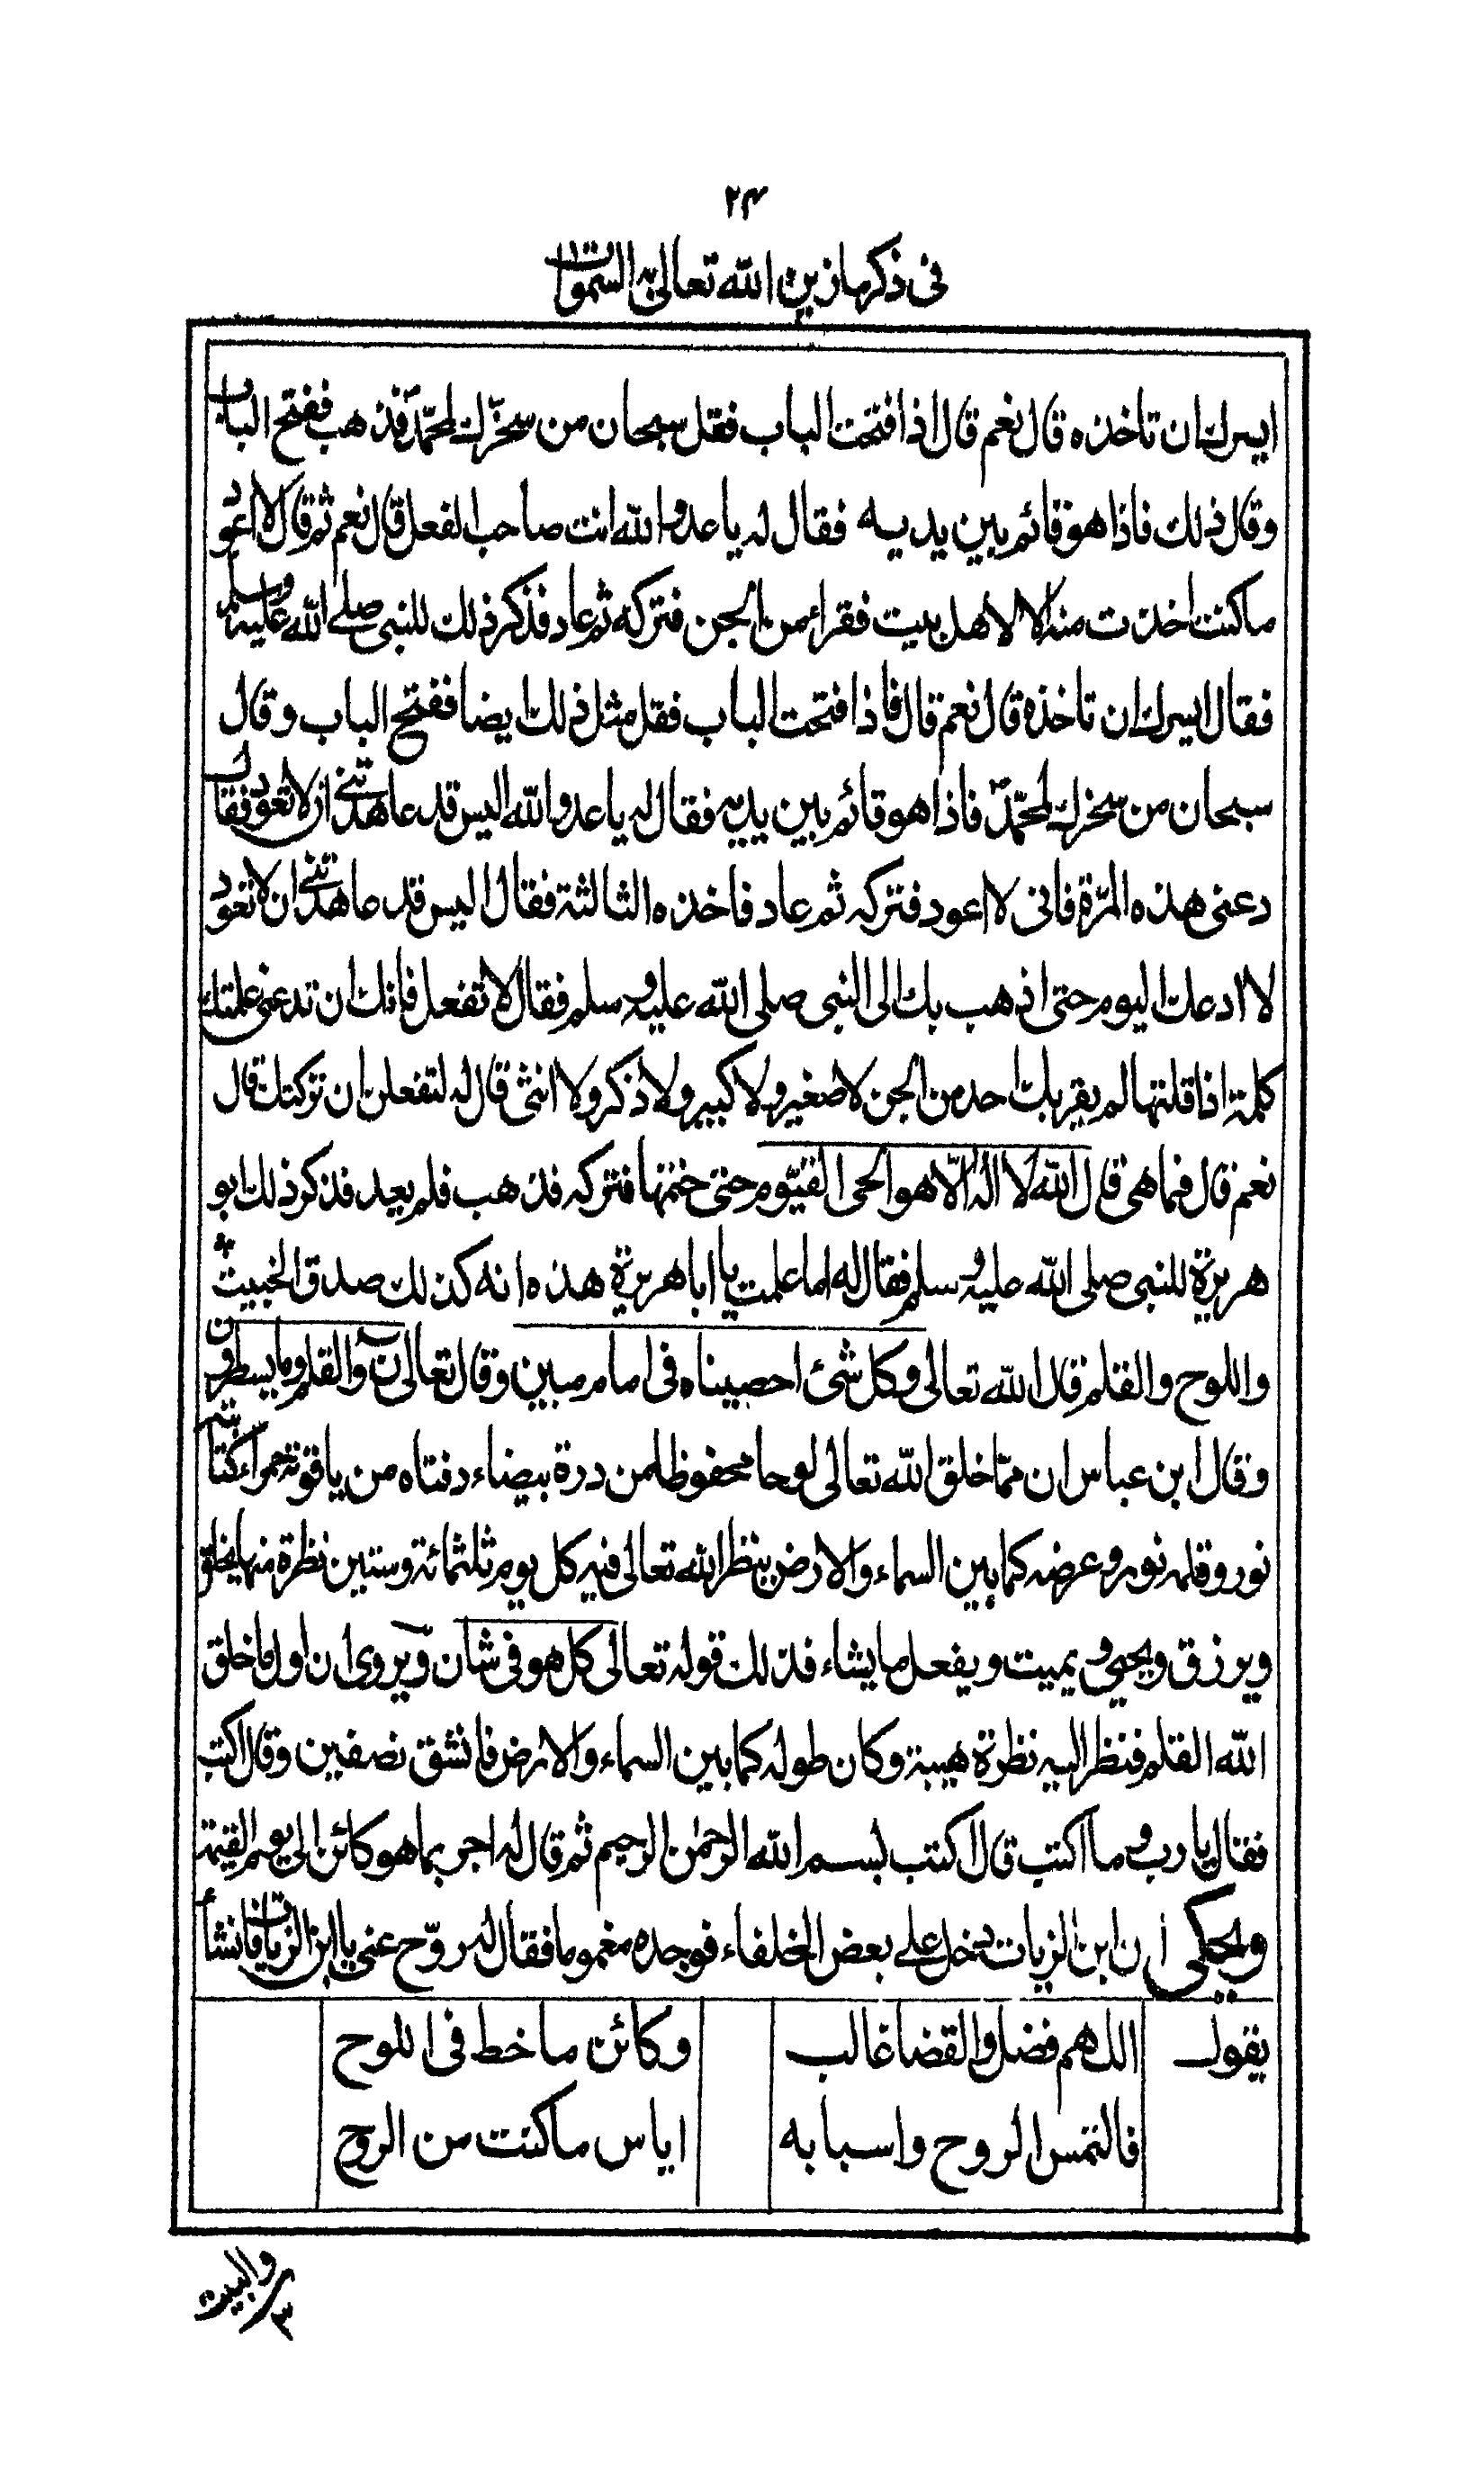 ۲۴
في ذكر ما زين الله تعالى به السموات
ايسرك ان تاخذه قال نعم قال اذا فتحت الباب فقل سبحان من سخرك لمحمد فذهب ففتح الباب
وقال ذلك فاذا هو قائم بين يديه فقال له يا عدو الله انت صاحب الفعل قال نعم ثم قال لا اعود
ما كنت اخذت منه الا لاهل بيت فقراء من الجن فتركه ثم عاد فذكر ذلك للنبي صلى الله عليه وسلم
فقال ايسرك ان تاخذه قال نعم قال فاذا فتحت الباب فقل مثل ذلك ايضا ففتح الباب وقال
سبحان من سخرك لمحمد فاذا هو قائم بين يديه فقال له يا عدو الله اليس قد عاهدتني ان لا تعود فقال
دعني هذه المرة فاني لا اعود فتركه ثم عاد فاخذه الثالثة فقال اليس قد عاهدتني ان لا تعود
لا ادعك اليوم حتى اذهب بك الى النبي صلى الله عليه وسلم فقال لا تفعل فانك ان تدعني علمتك
كلمة اذا قلتها لم يقربك احد من الجن لا صغير ولا كبير ولا ذكر ولا انثى قال له لتفعلن ان تركتك قال
نعم قال فما هي قال الله لا اله الا هو الحي القيوم حتى ختمها فتركه فذهب فلم يعد فذكر ذلك ابو
هريرة للنبي صلى الله عليه وسلم فقال له اما علمت يا ابا هريرة هذه انه كذلك صدق الخبيث
واللوح والقلم قال الله تعالى وكل شئ احصيناه في امام مبين وقال تعالى ن والقلم وما يسطرون
وقال ابن عباس ان مما خلق الله تعالى لوحا محفوظا من درة بيضاء دفتاه من ياقوتة حمراء كتابته
نور وقلمه نور وعرضه كما بين السماء والارض ينظر الله تعالى فيه كل يوم ثلثمائة وستين نظرة منها يخلق
ويرزق ويحيي ويميت ويفعل ما يشاء فذلك قوله تعالى كل هو في شان ويروى ان اول ما خلق
الله القلم فنظر اليه نظرة هيبة وكان طوله كما بين السماء والارض فانشق نصفين وقال اكتب
فقال يا رب وما اكتب قال اكتب بسم الله الرحمن الرحيم ثم قال له اجر بما هو كائن الى يوم القيمة
ويحكى ان ابن الزيات دخل على بعض الخلفاء فوجده مغموما فقال له روّح عني يا ابن الزيات فانشأ
يقول الهم فضل والقضا غالب وكائن ما خط في اللوح
فالتمس الروح واسبابه اياس ما كنت من الروح
والبيت
۳